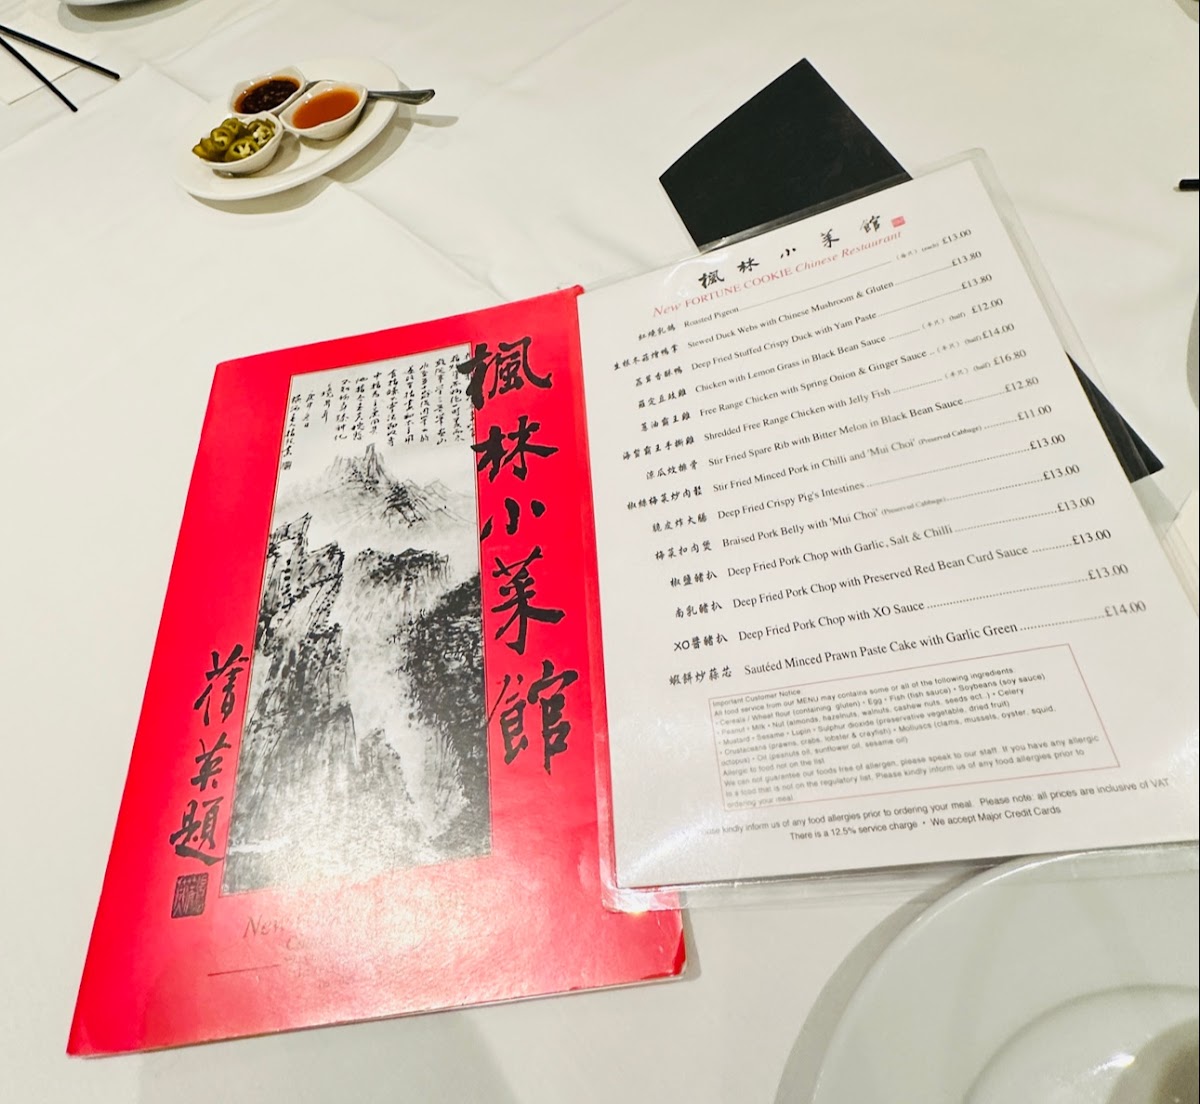 楓林小菜館
英題
New
楓林小菜館
New FORTUNE COOKIE Chinese Restaurant
紅燒乳鴿 Roasted Pigeon (each) £13.00
生根冬菇燴鴨掌 Stewed Duck Webs with Chinese Mushroom & Gluten £13.80
荔茸香酥鴨 Deep Fried Stuffed Crispy Duck with Yam Paste £13.80
豆豉雞 Chicken with Lemon Grass in Black Bean Sauce (半只) (half) £12.00
葱油霸王雞 Free Range Chicken with Spring Onion & Ginger Sauce (半只) (half) £14.00
海蜇霸王手撕雞 Shredded Free Range Chicken with Jelly Fish (半只) (half) £16.80
涼瓜炆排骨 Stir Fried Spare Rib with Bitter Melon in Black Bean Sauce £12.80
椒絲梅菜炒肉鬆 Stir Fried Minced Pork in Chilli and 'Mui Choi' (Preserved Cabbage) £11.00
脆皮炸大腸 Deep Fried Crispy Pig's Intestines £13.00
梅菜扣肉煲 Braised Pork Belly with 'Mui Choi' (Preserved Cabbage) £13.00
椒鹽豬扒 Deep Fried Pork Chop with Garlic, Salt & Chilli £13.00
南乳豬扒 Deep Fried Pork Chop with Preserved Red Bean Curd Sauce £13.00
XO醬豬扒 Deep Fried Pork Chop with XO Sauce £13.00
蝦餅炒蒜芯 Sautéed Minced Prawn Paste Cake with Garlic Green £14.00
Important Customer Notice
All food service from our MENU may contains some or all of the following ingredients
• Cereals / Wheat flour (containing gluten) • Egg • Fish (fish sauce) • Soybeans (soy sauce)
• Peanut • Milk • Nut (almonds, hazelnuts, walnuts, cashew nuts, seeds ect..) • Celery
• Mustard • Sesame • Lupin • Sulphur dioxide (preservative vegetable, dried fruit)
• Crustaceans (prawns, crabs, lobster & crayfish) • Molluscs (clams, mussels, oyster, squid,
octopus) • Oil (peanuts oil, sunflower oil, sesame oil)
Allergic to food not on the list
We can not guarantee our foods free of allergen, please speak to our staff. If you have any allergic
to a food that is not on the regulatory list. Please kindly inform us of any food allergies prior to
ordering your meal.
kindly inform us of any food allergies prior to ordering your meal. Please note: all prices are inclusive of VAT
There is a 12.5% service charge • We accept Major Credit Cards